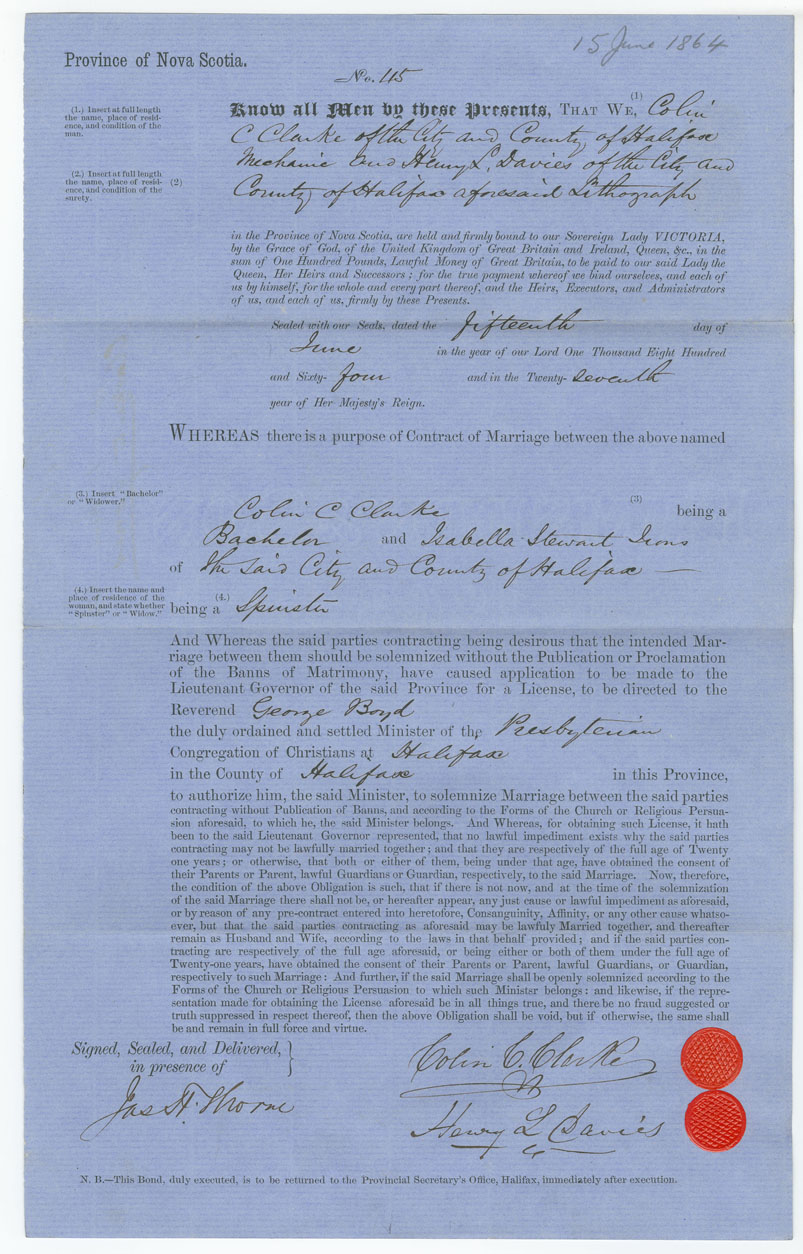 15 June 1864
Province of Nova Scotia.
No. 115
(1.) Insert at full length
the name, place of resid-
ence, and condition of the
man.
(1)
Know all Men by these Presents, THAT WE, Colin
C Clarke of the City and County of Halifax
Mechanic and Henry L. Davies of the City and
(2.) Insert at full length
the name, place of resid-
ence, and condition of the
surety.
(2)
County of Halifax aforesaid Lithograph
in the Province of Nova Scotia, are held and firmly bound to our Sovereign Lady VICTORIA,
by the Grace of God, of the United Kingdom of Great Britain and Ireland, Queen, &c., in the
sum of One Hundred Pounds, Lawful Money of Great Britain, to be paid to our said Lady the
Queen, Her Heirs and Successors; for the true payment whereof we bind ourselves, and each of
us by himself, for the whole and every part thereof, and the Heirs, Executors, and Administrators
of us, and each of us, firmly by these Presents.
Sealed with our Seals, dated the fifteenth day of
June in the year of our Lord One Thousand Eight Hundred
and Sixty- four and in the Twenty- seventh
year of Her Majesty's Reign.
WHEREAS there is a purpose of Contract of Marriage between the above named
(3.) Insert "Bachelor"
or "Widower."
Colin C Clarke (3) being a
Bachelor and Isabella Stewart Irons
of the said City and County of Halifax —
(4.) Insert the name and
place of residence of the
woman, and state whether
"Spinster" or "Widow."
being a (4.) Spinster
And Whereas the said parties contracting being desirous that the intended Mar-
riage between them should be solemnized without the Publication or Proclamation
of the Banns of Matrimony, have caused application to be made to the
Lieutenant Governor of the said Province for a License, to be directed to the
Reverend George Boyd
the duly ordained and settled Minister of the Presbyterian
Congregation of Christians at Halifax
in the County of Halifax in this Province,
to authorize him, the said Minister, to solemnize Marriage between the said parties
contracting without Publication of Banns, and according to the Forms of the Church or Religious Persua-
sion aforesaid, to which he, the said Minister belongs. And Whereas, for obtaining such License, it hath
been to the said Lieutenant Governor represented, that no lawful impediment exists why the said parties
contracting may not be lawfully married together; and that they are respectively of the full age of Twenty
one years; or otherwise, that both or either of them, being under that age, have obtained the consent of
their Parents or Parent, lawful Guardians or Guardian, respectively, to the said Marriage. Now, therefore,
the condition of the above Obligation is such, that if there is not now, and at the time of the solemnization
of the said Marriage there shall not be, or hereafter appear, any just cause or lawful impediment as aforesaid,
or by reason of any pre-contract entered into heretofore, Consanguinity, Affinity, or any other cause whatso-
ever, but that the said parties contracting as aforesaid may be lawfuly Married together, and thereafter
remain as Husband and Wife, according to the laws in that behalf provided; and if the said parties con-
tracting are respectively of the full age aforesaid, or being either or both of them under the full age of
Twenty-one years, have obtained the consent of their Parents or Parent, lawful Guardians, or Guardian,
respectively to such Marriage: And further, if the said Marriage shall be openly solemnized according to the
Forms of the Church or Religious Persuasion to which such Minister belongs: and likewise, if the repre-
sentation made for obtaining the License aforesaid be in all things true, and there be no fraud suggested or
truth suppressed in respect thereof, then the above Obligation shall be void, but if otherwise, the same shall
be and remain in full force and virtue.
Signed, Sealed, and Delivered,
in presence of
Colin C. Clarke
Jas H. Thorne
Henry L Davies
N. B.—This Bond, duly executed, is to be returned to the Provincial Secretary's Office, Halifax, immediately after execution.